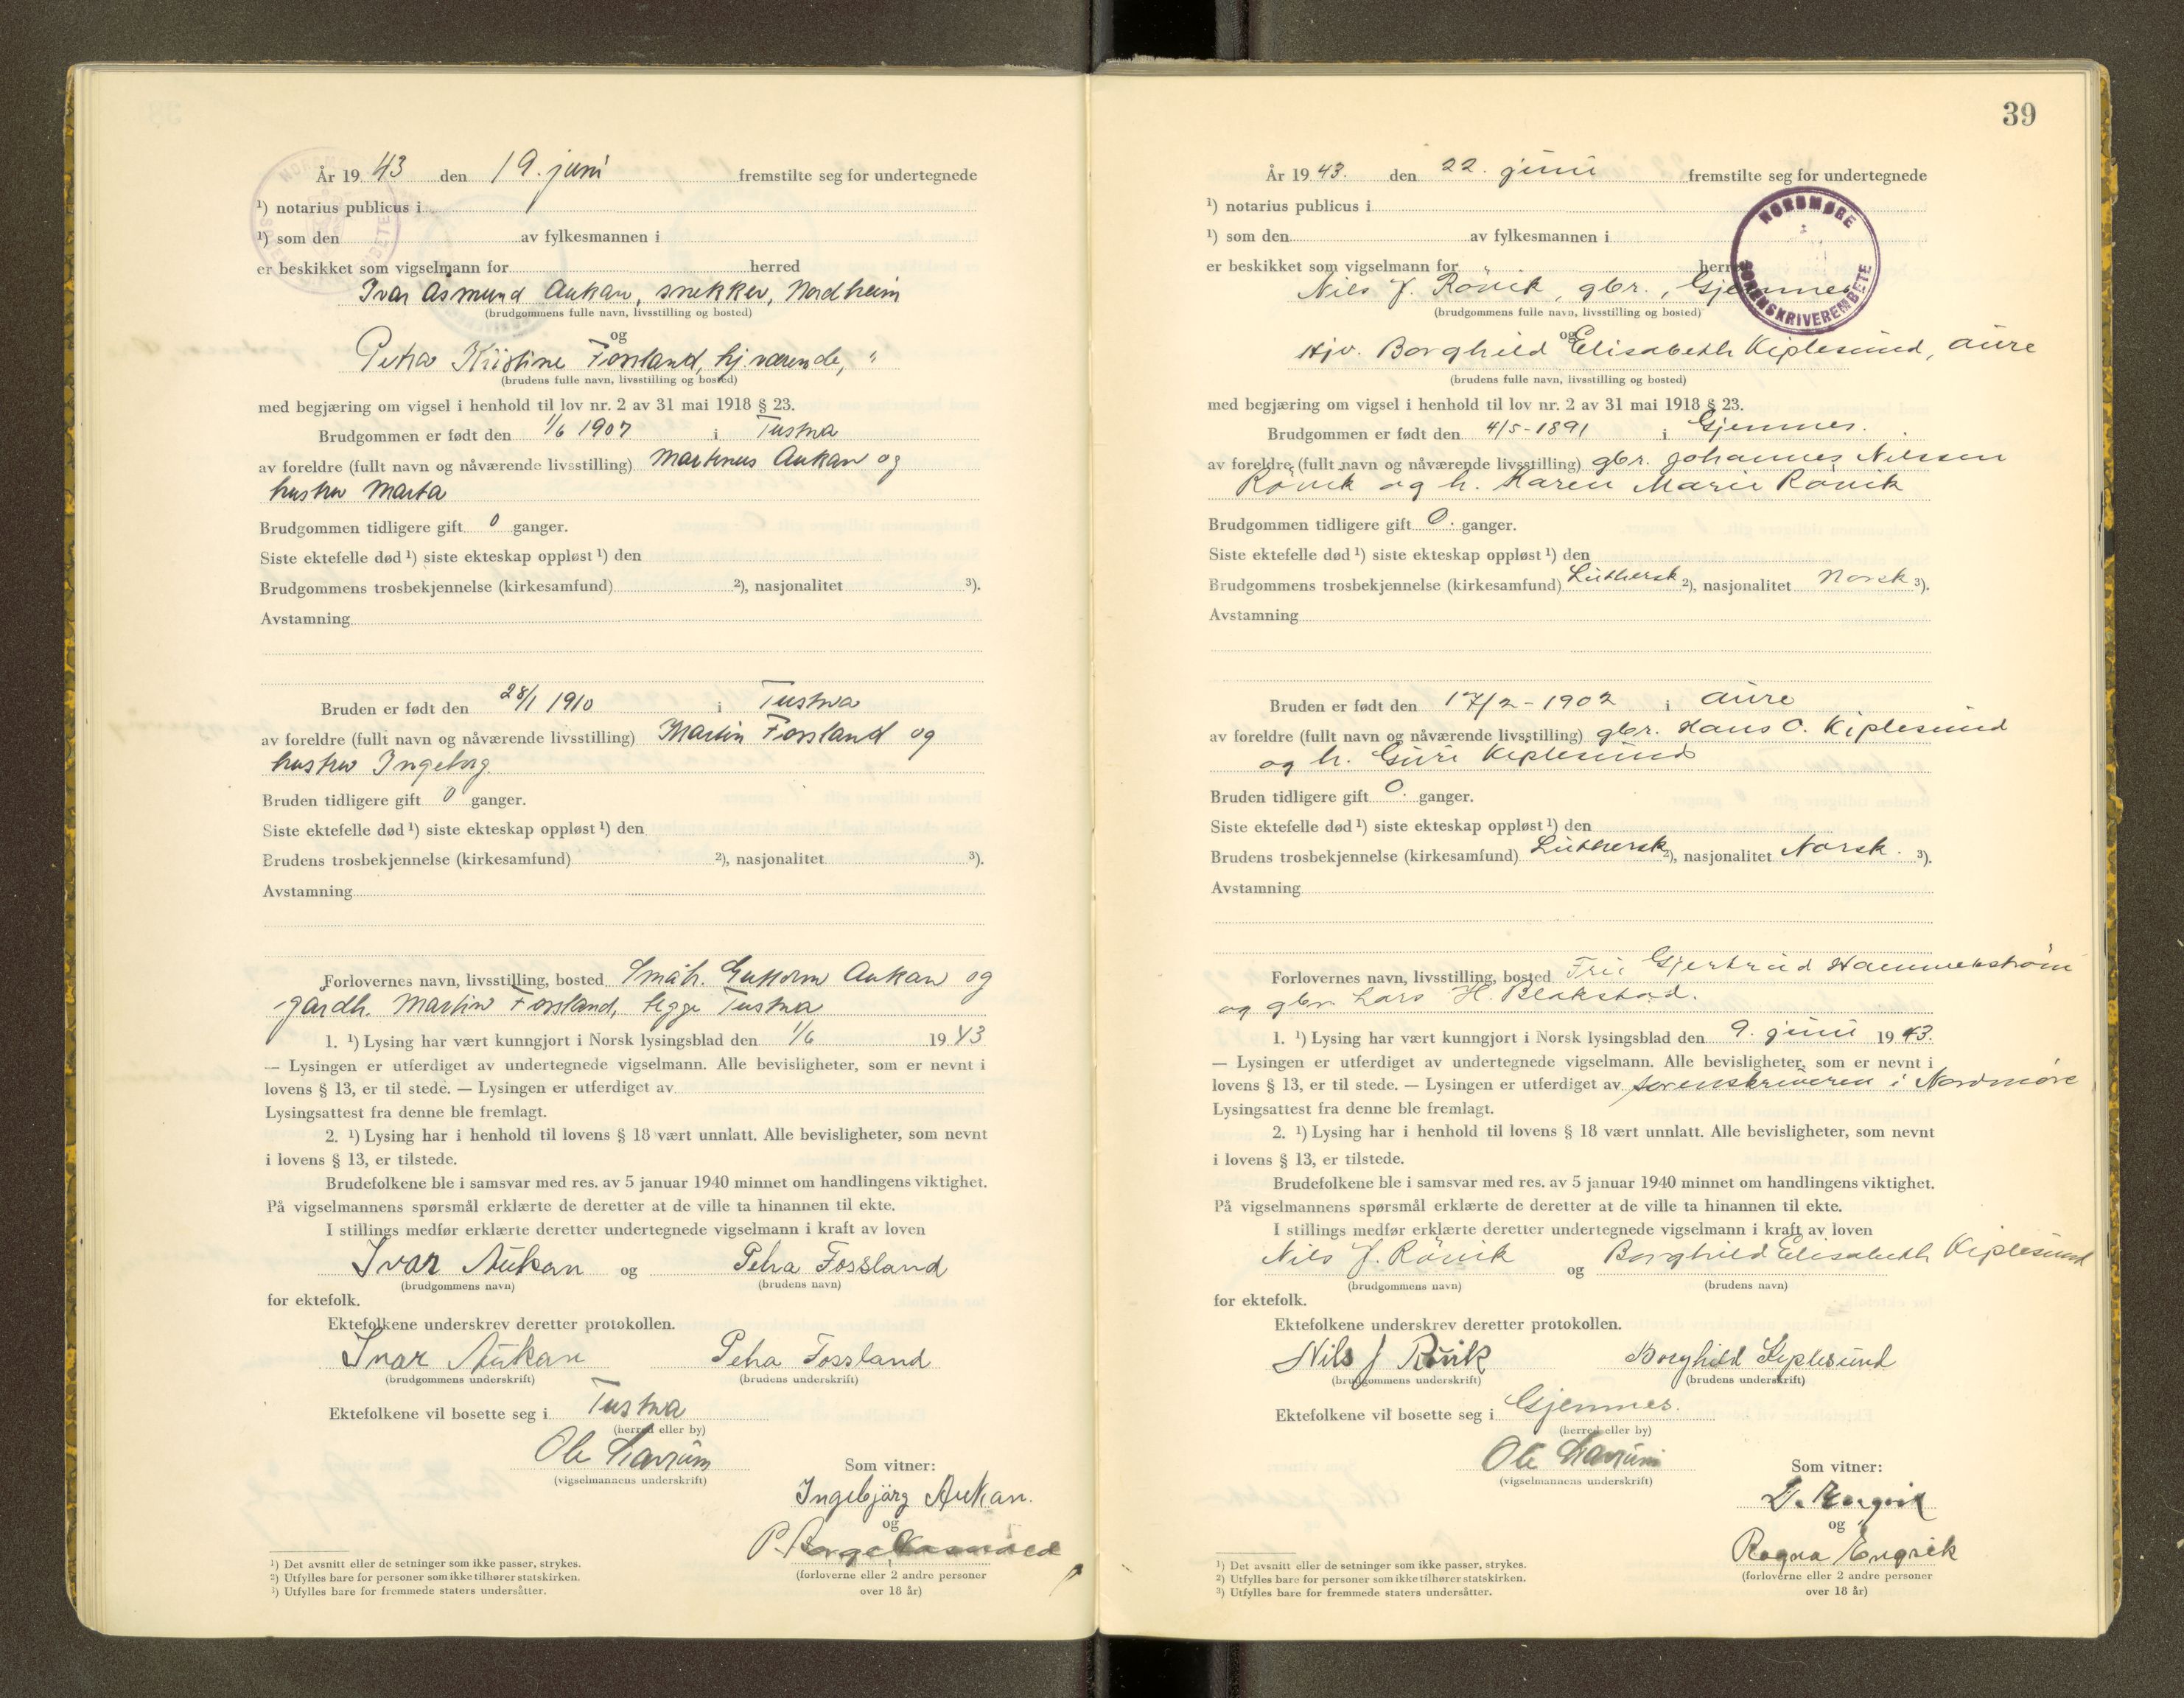 År 1943 den 19. juni fremstilte seg for undertegnede
¹) notarius publicus i
¹) som den av fylkesmannen i
er beskikket som vigselmann for herred
Ivar Asmund Aukan, snekker, Nordheim
(brudgommens fulle navn, livsstilling og bosted)
og
Petra Kristine Fossland, hj.værende, "
(brudens fulle navn, livsstilling og bosted)
med begjæring om vigsel i henhold til lov nr. 2 av 31 mai 1918 § 23.
Brudgommen er født den 1/6 1907 i Tustna
av foreldre (fullt navn og nåværende livsstilling) Martinus Aukan og
hustru Marta
Brudgommen tidligere gift 0 ganger.
Siste ektefelle død ¹) siste ekteskap oppløst ¹) den
Brudgommens trosbekjennelse (kirkesamfund) ²), nasjonalitet ³).
Avstamning
Bruden er født den 28/1 1910 i Tustna
av foreldre (fullt navn og nåværende livsstilling) Martin Fossland og
hustru Ingeborg.
Bruden tidligere gift 0 ganger.
Siste ektefelle død ¹) siste ekteskap oppløst ¹) den
Brudens trosbekjennelse (kirkesamfund) ²), nasjonalitet ³).
Avstamning
Forlovernes navn, livsstilling, bosted Småbr. Guttorm Aukan og
gårdbr. Martin Fossland, begge Tustna
1. ¹) Lysing har vært kunngjort i Norsk lysingsblad den 1/6 1943
— Lysingen er utferdiget av undertegnede vigselmann. Alle bevisligheter, som er nevnt i
lovens § 13, er til stede. — Lysingen er utferdiget av
Lysingsattest fra denne ble fremlagt.
2. ¹) Lysing har i henhold til lovens § 18 vært unnlatt. Alle bevisligheter, som nevnt
i lovens § 13, er tilstede.
Brudefolkene ble i samsvar med res. av 5 januar 1940 minnet om handlingens viktighet.
På vigselmannens spørsmål erklærte de deretter at de ville ta hinannen til ekte.
I stillings medfør erklærte deretter undertegnede vigselmann i kraft av loven
Ivar Aukan og Petra Fossland
(brudgommens navn) (brudens navn)
for ektefolk.
Ektefolkene underskrev deretter protokollen.
Ivar Aukan Petra Fossland
(brudgommens underskrift) (brudens underskrift)
Ektefolkene vil bosette seg i Tustna
(herred eller by)
Ole
(vigselmannens underskrift)
Som vitner:
Ingebjørg Aukan.
og
P.
(forloverne eller 2 andre personer
over 18 år)
¹) Det avsnitt eller de setninger som ikke passer, strykes.
²) Utfylles bare for personer som ikke tilhører statskirken.
³) Utfylles bare for fremmede staters undersåtter.
39
År 1943. den 22. juni fremstilte seg for undertegnede
¹) notarius publicus i
¹) som den av fylkesmannen i
er beskikket som vigselmann for herred
NORDMØRE
SORENSKRIVEREMBETE
Nils J. Rövik, gbr., Gjemnes
(brudgommens fulle navn, livsstilling og bosted)
og
Hjv. Borghild Elisabeth Kiplesund, Aure
(brudens fulle navn, livsstilling og bosted)
med begjæring om vigsel i henhold til lov nr. 2 av 31 mai 1918 § 23.
Brudgommen er født den 4/5-1891 i Gjemnes.
av foreldre (fullt navn og nåværende livsstilling) gbr. Johannes Nilssen
Rövik og h. Karen Marie Rövik
Brudgommen tidligere gift 0. ganger.
Siste ektefelle død ¹) siste ekteskap oppløst ¹) den
Brudgommens trosbekjennelse (kirkesamfund) Luthersk ²), nasjonalitet Norsk ³).
Avstamning
Bruden er født den 17/2-1902 i Aure
av foreldre (fullt navn og nåværende livsstilling) gbr. Hans O. Kiplesund
og h. Guri Kiplesund
Bruden tidligere gift 0. ganger.
Siste ektefelle død ¹) siste ekteskap oppløst ¹) den
Brudens trosbekjennelse (kirkesamfund) Luthersk ²), nasjonalitet Norsk. ³).
Avstamning
Forlovernes navn, livsstilling, bosted Fru Gjertrud Hammerstrøm
og gbr. Lars H. Blakstad.
1. ¹) Lysing har vært kunngjort i Norsk lysingsblad den 9. juni 1943.
— Lysingen er utferdiget av undertegnede vigselmann. Alle bevisligheter, som er nevnt i
lovens § 13, er til stede. — Lysingen er utferdiget av sorenskriveren i Nordmøre
Lysingsattest fra denne ble fremlagt.
2. ¹) Lysing har i henhold til lovens § 18 vært unnlatt. Alle bevisligheter, som nevnt
i lovens § 13, er tilstede.
Brudefolkene ble i samsvar med res. av 5 januar 1940 minnet om handlingens viktighet.
På vigselmannens spørsmål erklærte de deretter at de ville ta hinannen til ekte.
I stillings medfør erklærte deretter undertegnede vigselmann i kraft av loven
Nils J. Rövik og Borghild Elisabeth Kiplesund
(brudgommens navn) (brudens navn)
for ektefolk.
Ektefolkene underskrev deretter protokollen.
Nils J Rövik Borghild Kiplesund
(brudgommens underskrift) (brudens underskrift)
Ektefolkene vil bosette seg i Gjemnes.
(herred eller by)
Ole
(vigselmannens underskrift)
Som vitner:
og
Ragna Engvik
(forloverne eller 2 andre personer
over 18 år)
¹) Det avsnitt eller de setninger som ikke passer, strykes.
²) Utfylles bare for personer som ikke tilhører statskirken.
³) Utfylles bare for fremmede staters undersåtter.